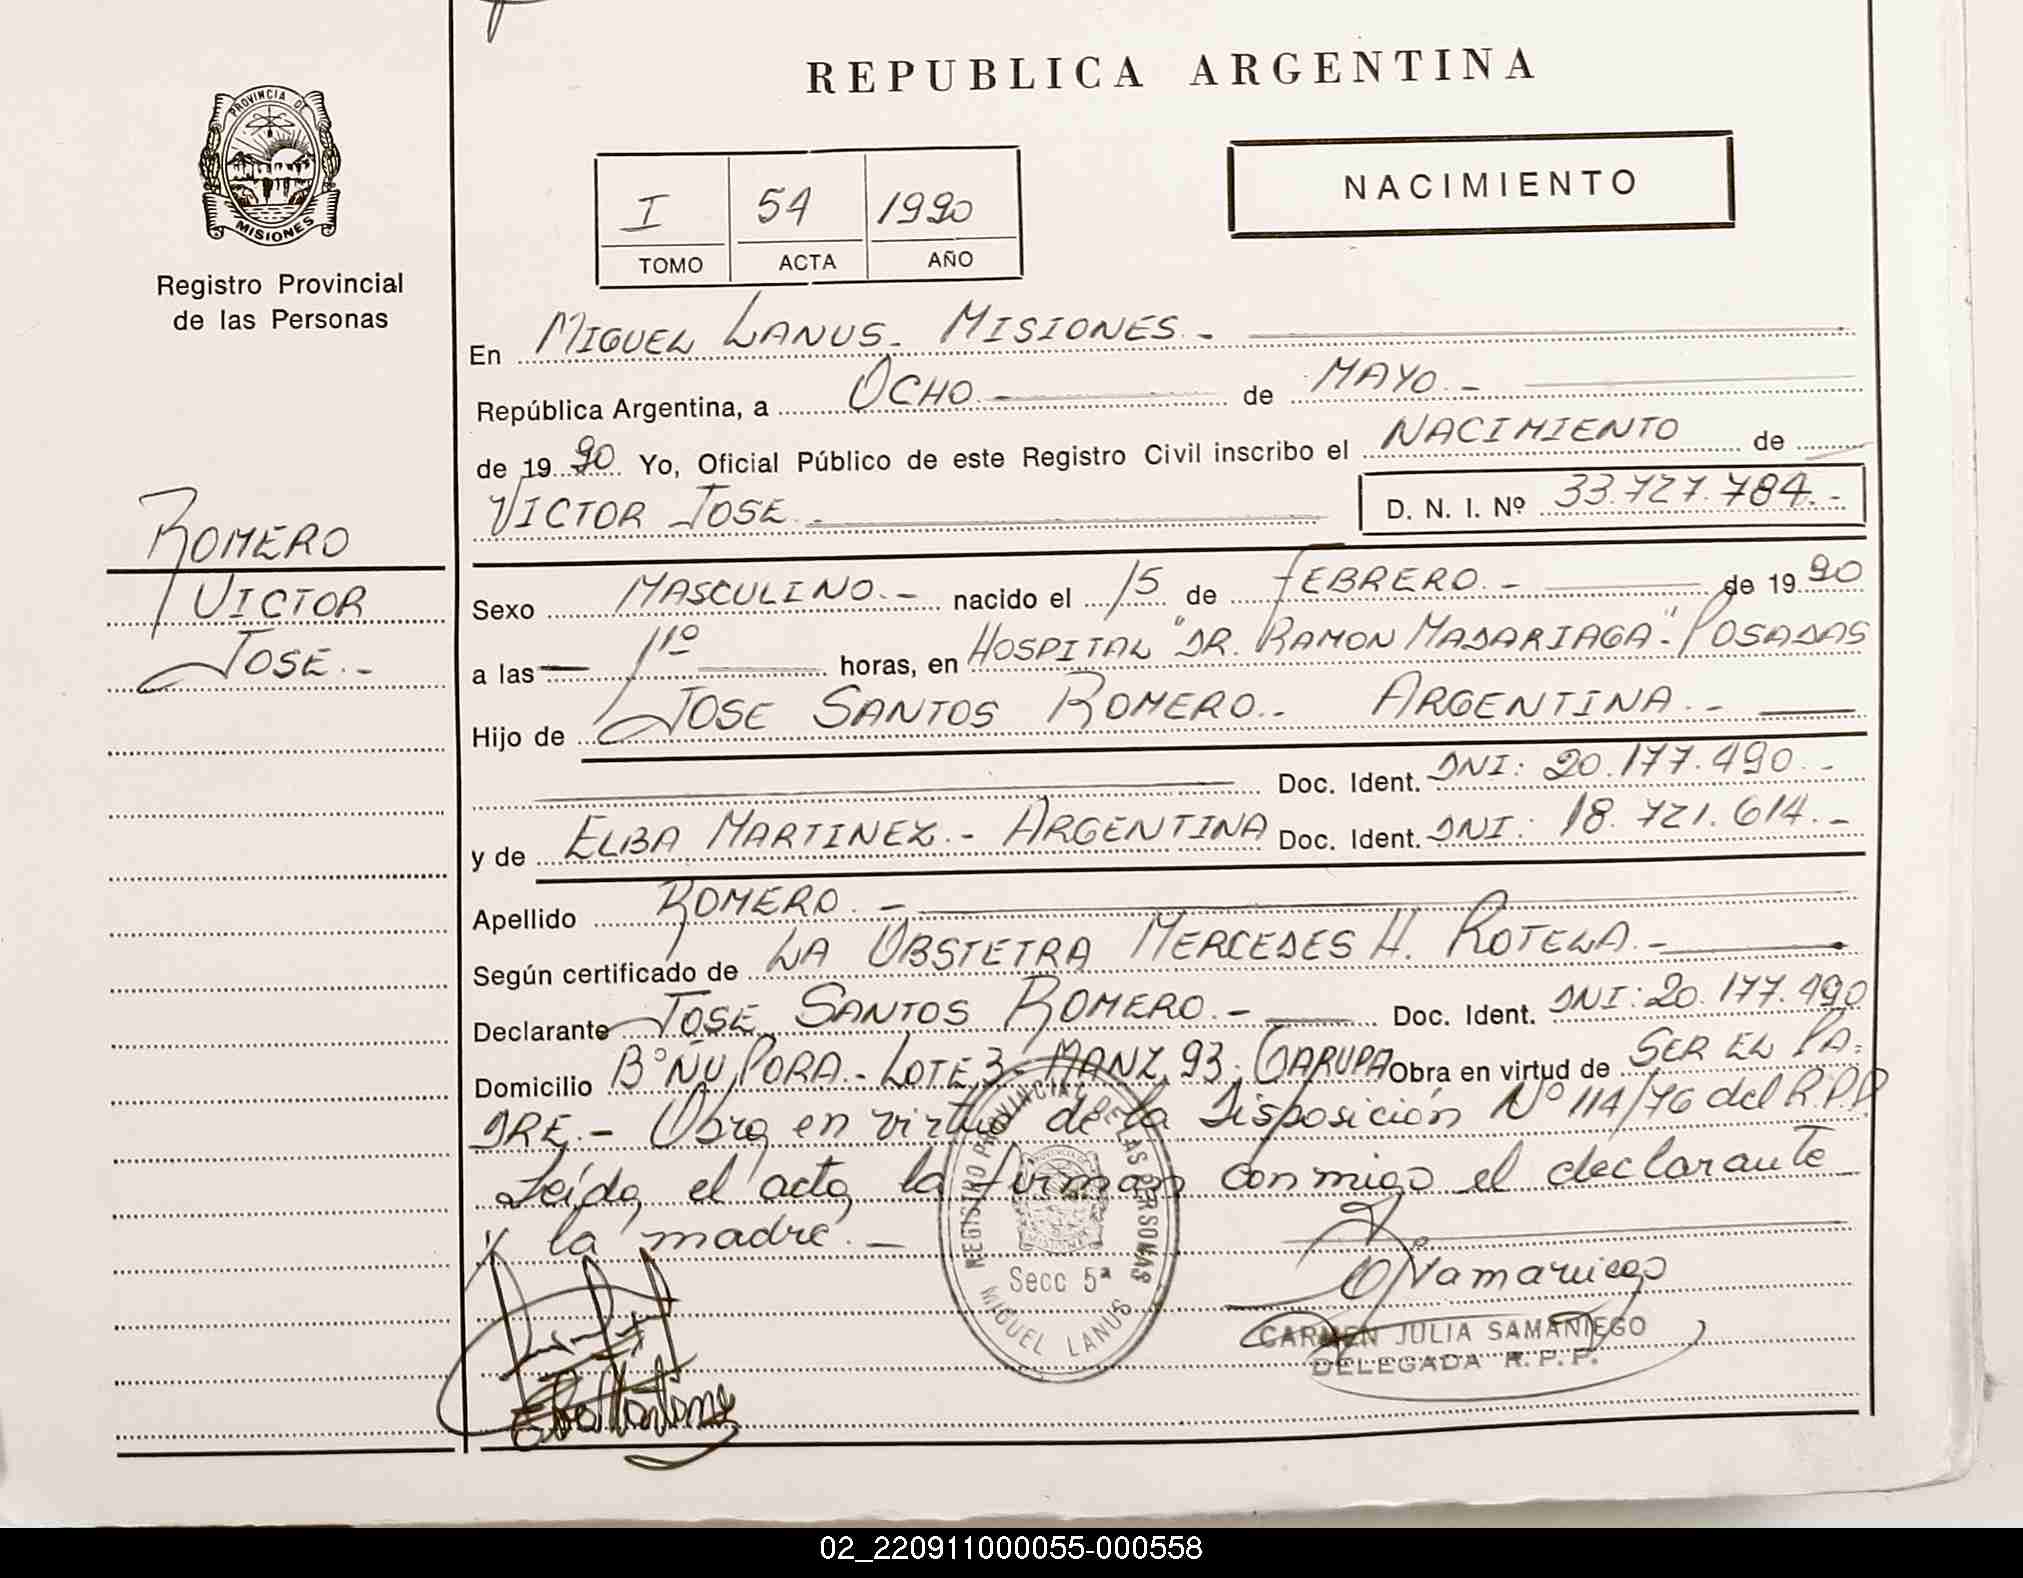 REPUBLICA ARGENTINA
PROVINCIA DE
MISIONES
Registro Provincial
de las Personas
I 54 1990
TOMO ACTA AÑO
NACIMIENTO
En MIGUEL LANUS - MISIONES.-
República Argentina, a OCHO.- de MAYO.-
de 1990 Yo, Oficial Público de este Registro Civil inscribo el NACIMIENTO de
VICTOR JOSE.- D. N. I. Nº 33.727.784.-
ROMERO
VICTOR
JOSE.-
Sexo MASCULINO.- nacido el 15 de FEBRERO.- de 1990
a las 11º horas, en HOSPITAL "DR. RAMON MADARIAGA".- POSADAS
Hijo de JOSE SANTOS ROMERO.- ARGENTINA.-
Doc. Ident. DNI: 20.177.490.-
y de ELBA MARTINEZ.- ARGENTINA Doc. Ident. DNI: 18.721.614.-
Apellido ROMERO.-
Según certificado de LA OBSTETRA MERCEDES H. ROTELA.-
Declarante JOSE SANTOS ROMERO.- Doc. Ident. DNI: 20.177.490
Domicilio Bº ÑU PORA.- LOTE 3- MANZ 93. GARUPA Obra en virtud de SER EL PA-
DRE.- Obra en virtud de la Disposición Nº 114/76 del R.P.P
Leída el acta la firman conmigo el declarante
y la madre.-
REGISTRO PROVINCIAL DE LAS PERSONAS
Secc 5ª
MIGUEL LANUS
CARMEN JULIA SAMANIEGO
DELEGADA R.P.P.
Elba Martinez
02_220911000055-000558